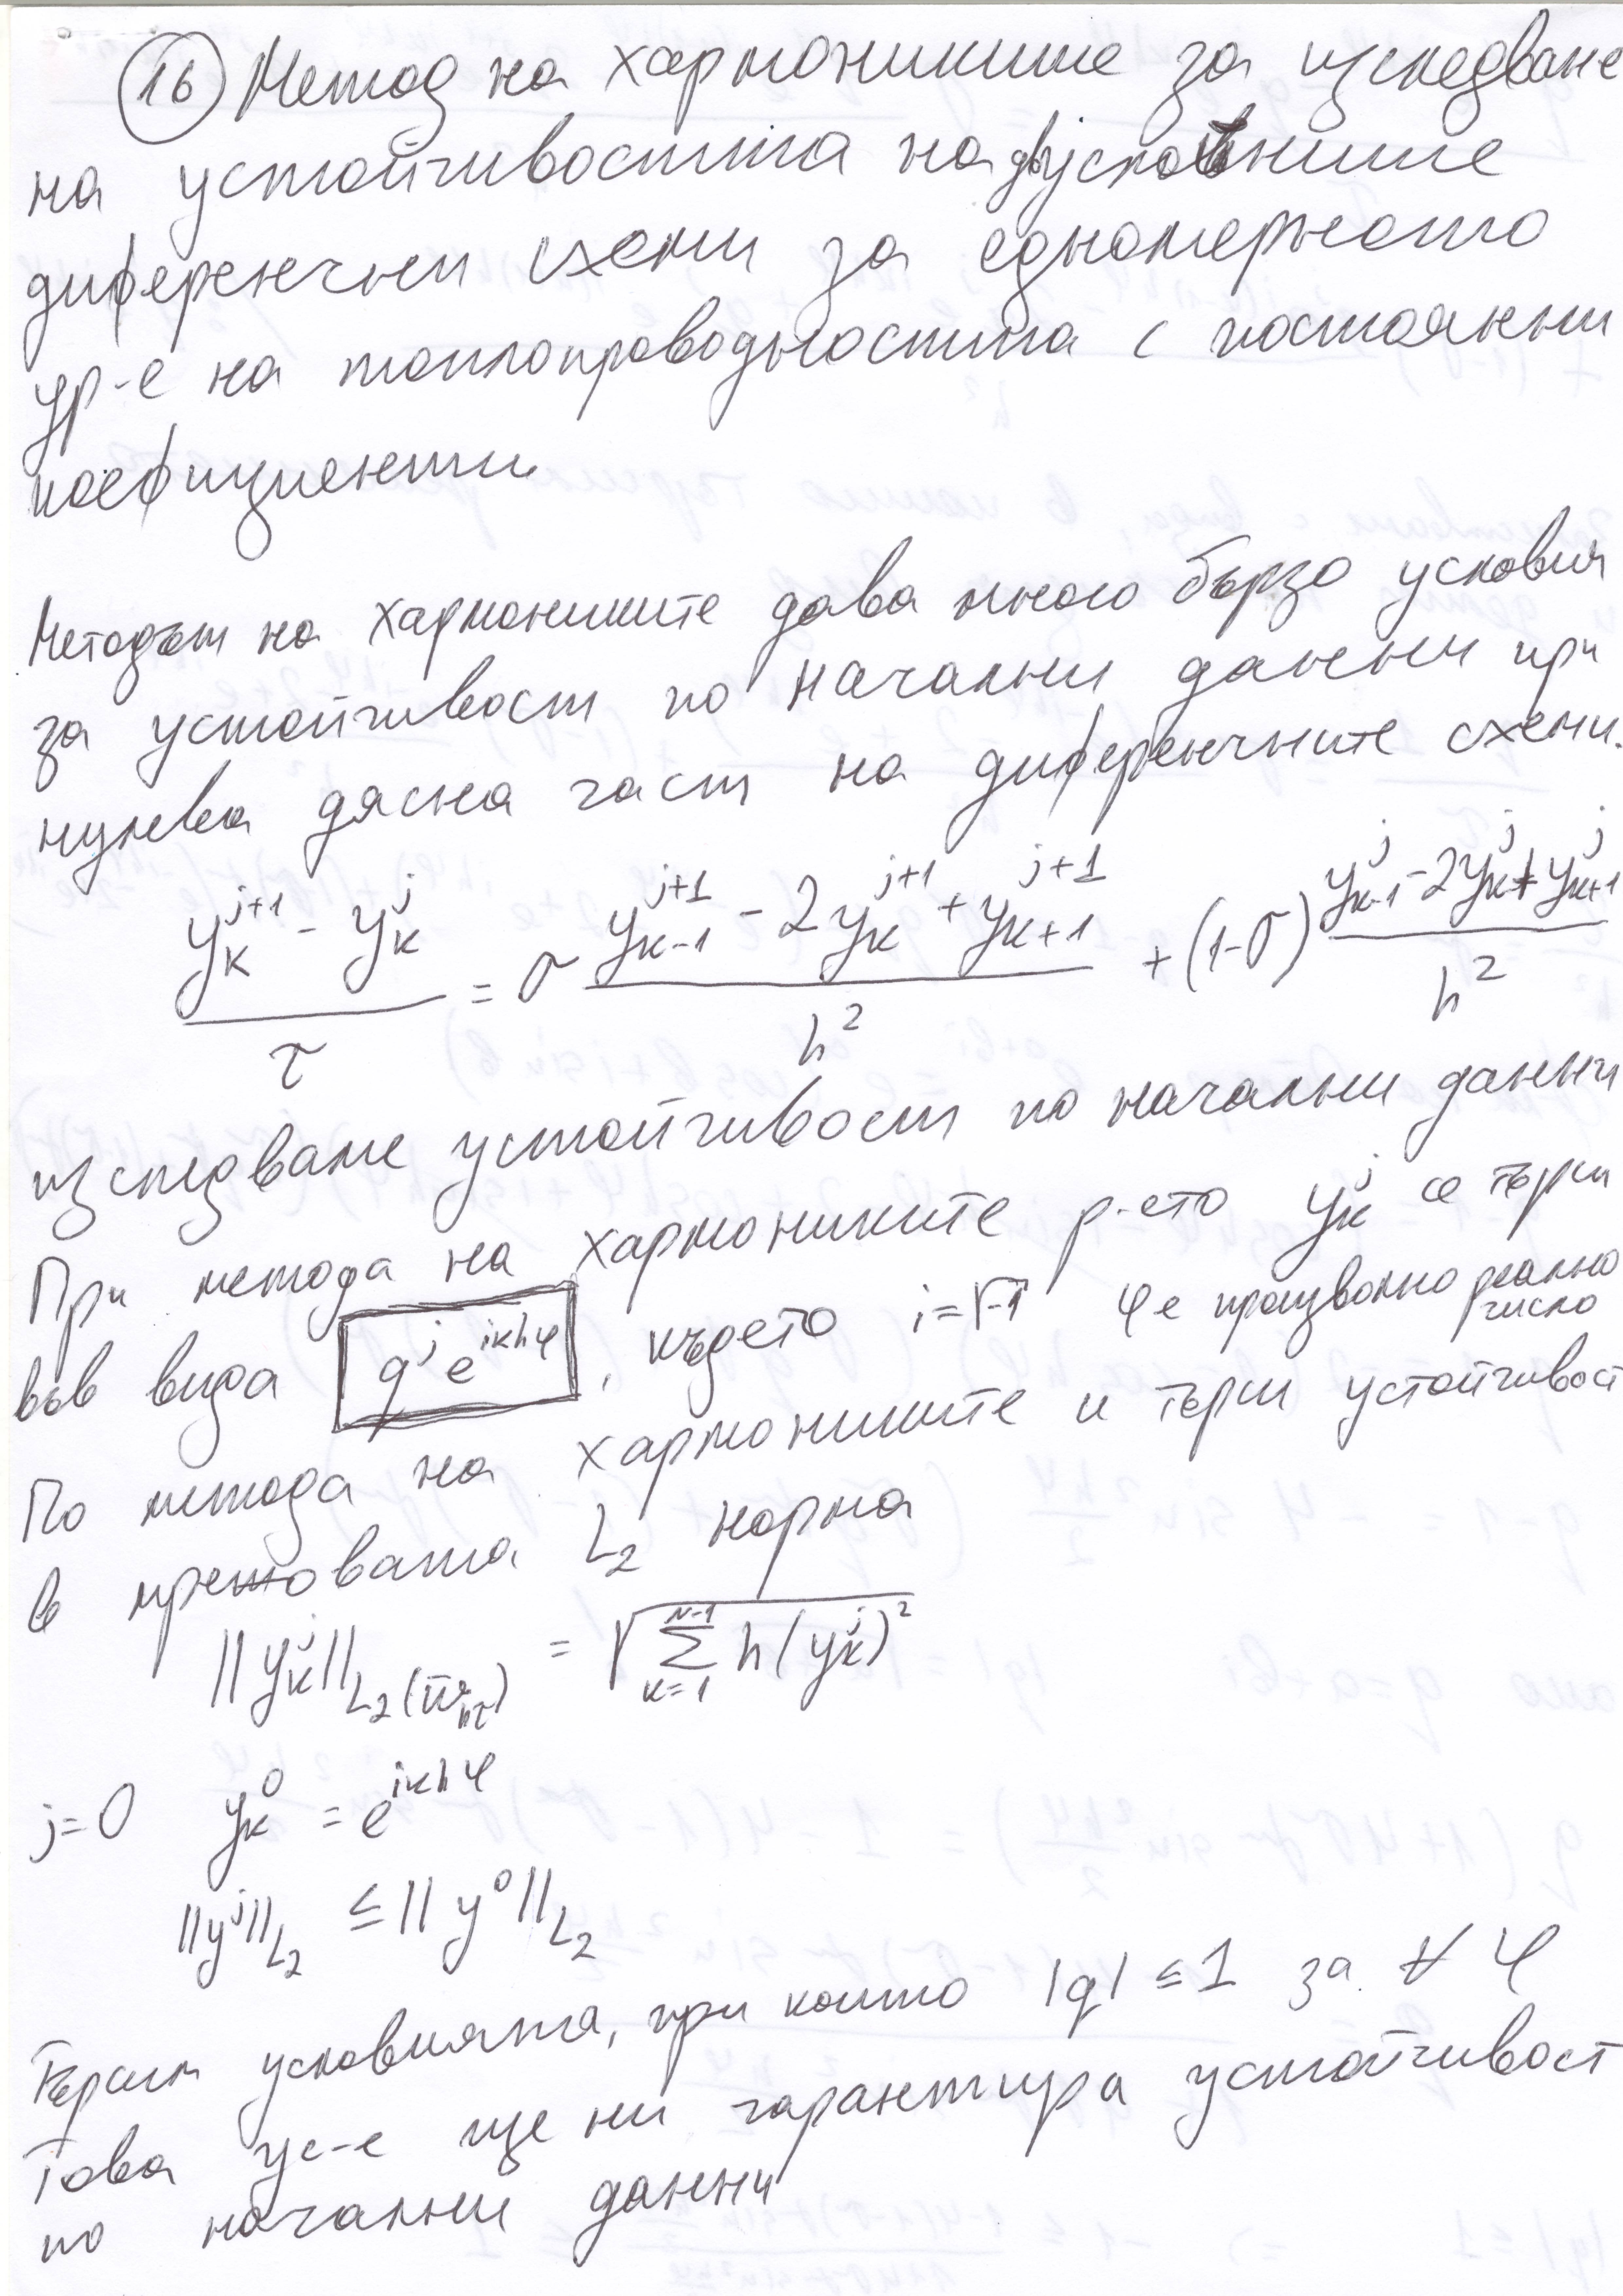 (16) Метод на хармониките за изследване
на устойчивостта на двуслойните
диференчни схеми за едномерното
ур-е на топлопроводността с постоянни
коефициенти
Методът на хармониките дава много бързо условия
за устойчивост по начални данни при
нулева дясна част на диференчните схеми.
(y_k^{j+1} - y_k^j)/τ = σ (y_{k-1}^{j+1} - 2y_k^{j+1} + y_{k+1}^{j+1})/h^2 + (1-σ) (y_{k-1}^j - 2y_k^j + y_{k+1}^j)/h^2
изследваме устойчивост по начални данни
При метода на хармониките р-ето y_k^j се търси
във вида q^j e^{ikhφ}, където i=√-1 φ е произволно реално число
По метода на хармониките и търси устойчивост
в мрежовата L_2 норма
||y_k^j||_{L_2(ω̄_{hτ})} = √(∑_{k=1}^{N-1} h(y_k^j)^2)
j=0 y_k^0 = e^{ikhφ}
||y^j||_{L_2} ≤ ||y^0||_{L_2}
Търсим условията, при които |q| ≤ 1 за ∀ φ
Това ус-е ще ни гарантира устойчивост
по начални данни